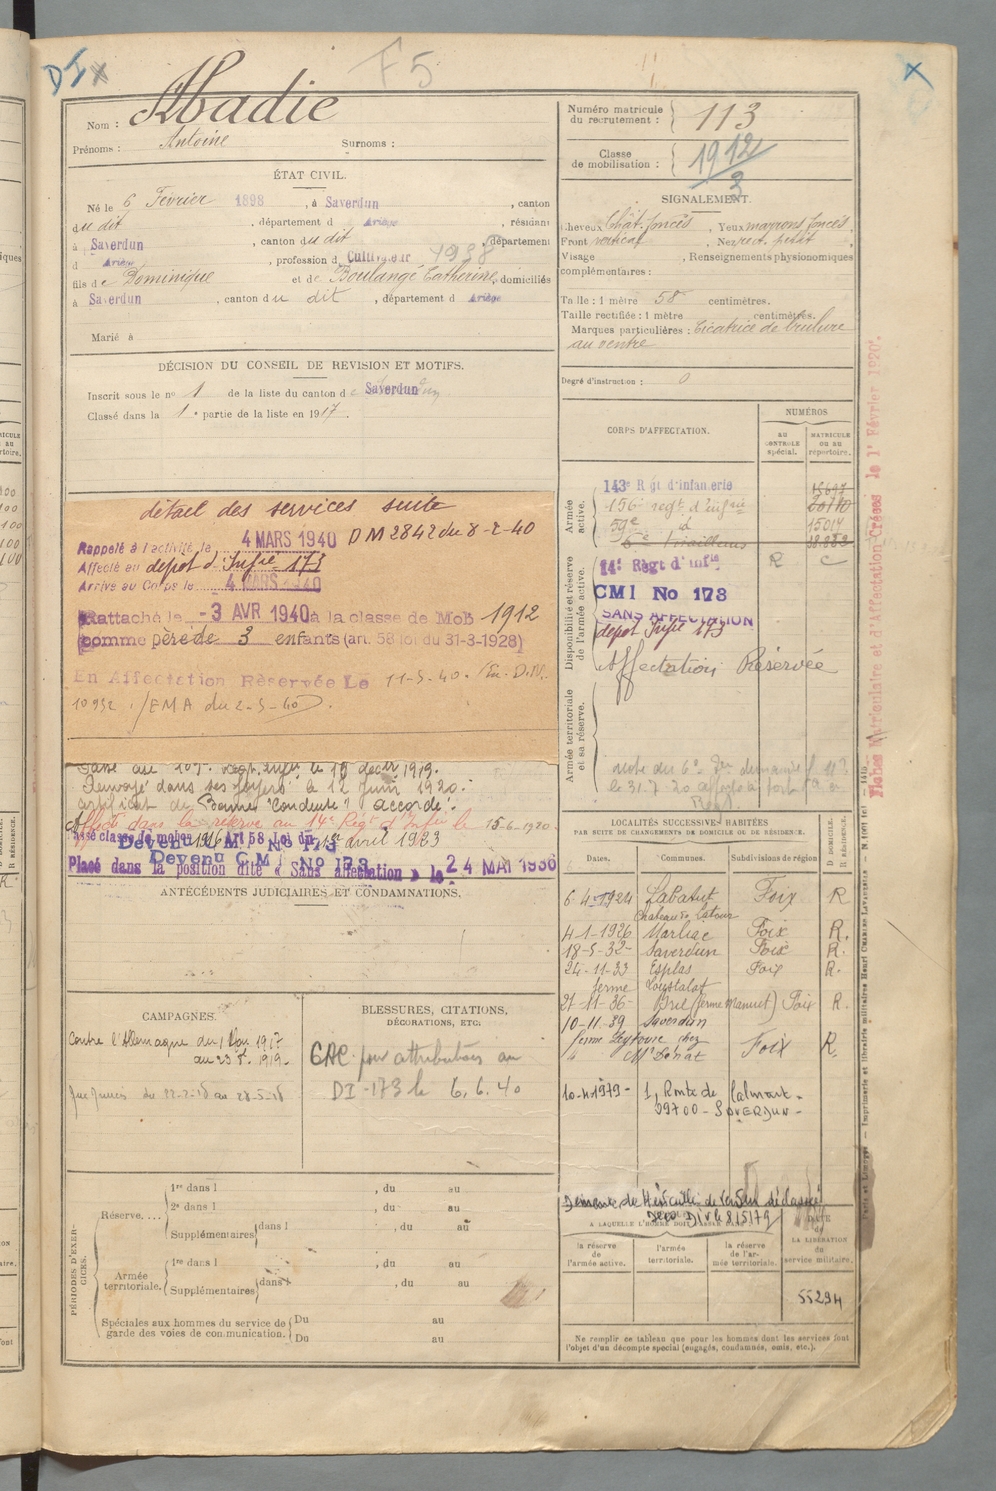 DI x
F5
x
Nom : Abadie
Prénoms : Antoine Surnoms :
ÉTAT CIVIL.
Né le 6 Février 1898, à Saverdun, canton
du dit, département d Ariège, résidant
à Saverdun, canton du dit, département
d Ariège, profession d Cultivateur 1938
fils de Dominique et de Boulangé Catherine, domiciliés
à Saverdun, canton du dit, département d Ariège
Marié à
DÉCISION DU CONSEIL DE REVISION ET MOTIFS.
Inscrit sous le nº 1 de la liste du canton de Saverdun
Classé dans la 1e partie de la liste en 1917.
détail des services suite
Rappelé à l'activité le 4 MARS 1940 DM 2842 du 8-2-40
Affecté au dépôt d'Infie 173
Arrivé au Corps le 4 MARS 1940
Rattaché le -3 AVR 1940 à la classe de Mob 1912
comme père de 3 enfants (art. 58 loi du 31-3-1928)
En Affectation Réservée Le 11-5-40. /En. D.M.
10932 /EMA du 2-5-40.
Passé au 107e Regt Infie le 18 décbr 1919.
Renvoyé dans ses foyers le 12 Juin 1920.
certificat de Bonne Conduite accordé.
Affecté dans la réserve au 14e Régt d'Infie le 15-6-1920
avril 1923
Devenu C M I No 173
Placé dans la position dite « Sans affectation » le 24 MAI 1936
ANTÉCÉDENTS JUDICIAIRES ET CONDAMNATIONS.
CAMPAGNES.
Contre l'Allemagne du 1 Mai 1917
au 23 8. 1919.
du 22-2-18 au 28-5-18
BLESSURES, CITATIONS,
DÉCORATIONS, ETC.
CAC pour attribution au
DI-173 le 6.6.40
PÉRIODES D'EXERCICES.
Réserve.... 1re dans l , du au
2e dans l , du au
Supplémentaires dans l , du au
Armée territoriale. 1re dans l , du au
Supplémentaires dans l , du au
Spéciales aux hommes du service de garde des voies de communication. Du au
Du au
Numéro matricule
du recrutement : 113
Classe
de mobilisation : 1912
3
SIGNALEMENT.
Cheveux Chât. foncés, Yeux marrons foncés,
Front vertical, Nez rect. petit,
Visage , Renseignements physionomiques
complémentaires :
Taille : 1 mètre 58 centimètres.
Taille rectifiée : 1 mètre centimètres.
Marques particulières : Cicatrice de brulure
au ventre
Degré d'instruction : 0
CORPS D'AFFECTATION.
NUMÉROS
AU CONTROLE spécial.
MATRICULE OU AU répertoire.
Armée active.
143e Régt d'infanterie 15697
156e regt d'infie 20710
59e id 15014
6e Tirailleurs 38.283
Disponibilité et réserve de l'armée active.
14e Régt d'infie R C
CMI No 173
SANS AFFECTATION
depot Infie 173
Affectation Réservée
Armée territoriale et sa réserve.
LOCALITÉS SUCCESSIVES HABITÉES
PAR SUITE DE CHANGEMENTS DE DOMICILE OU DE RÉSIDENCE.
Dates. Communes. Subdivisions de région D. DOMICILE. R. RÉSIDENCE.
6-4-1924 Labatut Foix R
Chateau de Latour
4-1-1926 Marliac Foix R.
18-5-32 Saverdun Foix R.
24-11-33 Esplas Foix R.
ferme Loustalot
21-11-36 Bril (ferme Manuel) Foix R.
10-11-39 Saverdun
ferme Peytavie chez
Mr Donat Foix R.
10-4-1979- 1, Route de Calmont-
09700 - SAVERDUN -
Demande de Médaille de Verdun déclassé
A LAQUELLE L'HOMME DOIT PASSER DANS :
la réserve de l'armée active.
l'armée territoriale.
la réserve de l'armée territoriale.
DATE de LA LIBÉRATION du service militaire.
55294
Ne remplir ce tableau que pour les hommes dont les services font
l'objet d'un décompte spécial (engagés, condamnés, omis, etc.).
Fiches Matriculaire et d'Affectation Créées le 1r Février 1920.
Paris et Limoges. — Imprimerie et librairie militaires Henri CHARLES-LAVAUZELLE